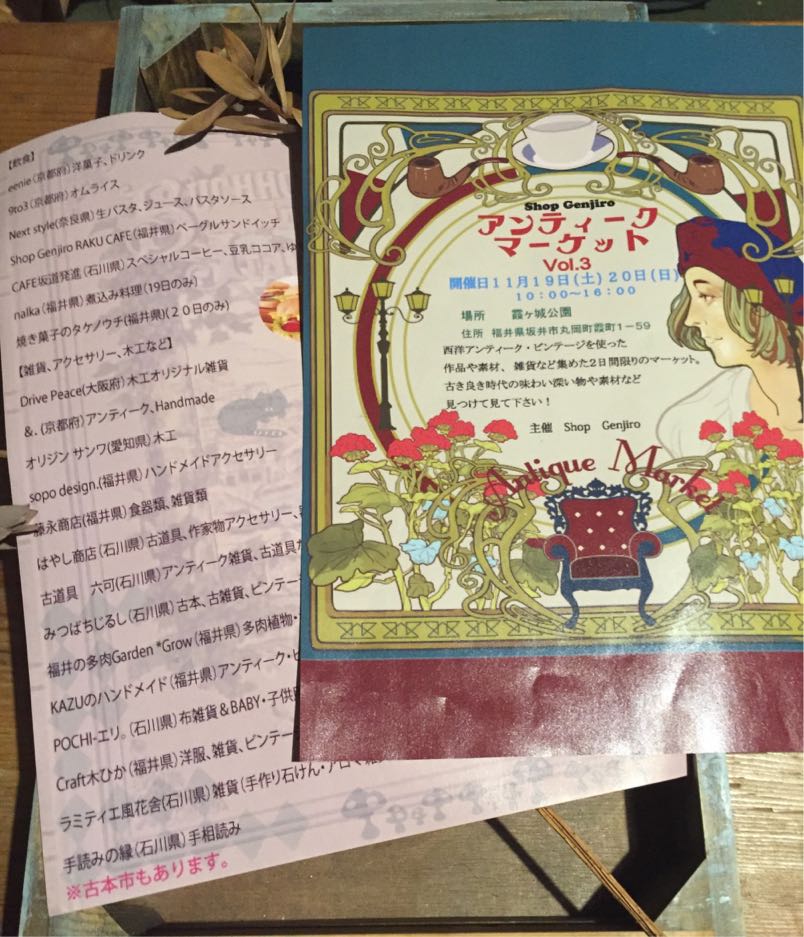 【飲食】
eenie(京都府)洋菓子、ドリンク
9to3(京都府)オムライス
Next style(奈良県)生パスタ、ジュース、パスタソース
Shop Genjiro RAKU CAFE(福井県)ベーグルサンドイッチ
CAFE坂道発進(石川県)スペシャルコーヒー、豆乳ココア、ゆ
nalka(福井県)煮込み料理(19日のみ)
焼き菓子のタケノウチ(福井県)(20日のみ)
【雑貨、アクセサリー、木工など】
Drive Peace(大阪府)木工オリジナル雑貨
&.(京都府)アンティーク、Handmade
オリジン サンワ(愛知県)木工
sopo design.(福井県)ハンドメイドアクセサリー
藤永商店(福井県)食器類、雑貨類
はやし商店(石川県)古道具、作家物アクセサリー、
古道具 六可(石川県)アンティーク雑貨、古道具
みつばちじるし(石川県)古本、古雑貨、ビンテー
福井の多肉Garden *Grow(福井県)多肉植物・
KAZUのハンドメイド(福井県)アンティーク・ビ
POCHI-エリ。(石川県)布雑貨&BABY・子供
Craft木ひか(福井県)洋服、雑貨、ビンテー
ラミティエ風花舎(石川県)雑貨(手作り石けん・アロマ
手読みの縁(石川県)手相読み
※古本市もあります。
Shop Genjiro
アンティーク
マーケット
Vol.3
開催日11月19日(土)20日(日)
10:00~16:00
場所 霞ヶ城公園
住所 福井県坂井市丸岡町霞町1-59
西洋アンティーク・ビンテージを使った
作品や素材、雑貨など集めた2日間限りのマーケット。
古き良き時代の味わい深い物や素材など
見つけて見て下さい!
主催 Shop Genjiro
Antique Market